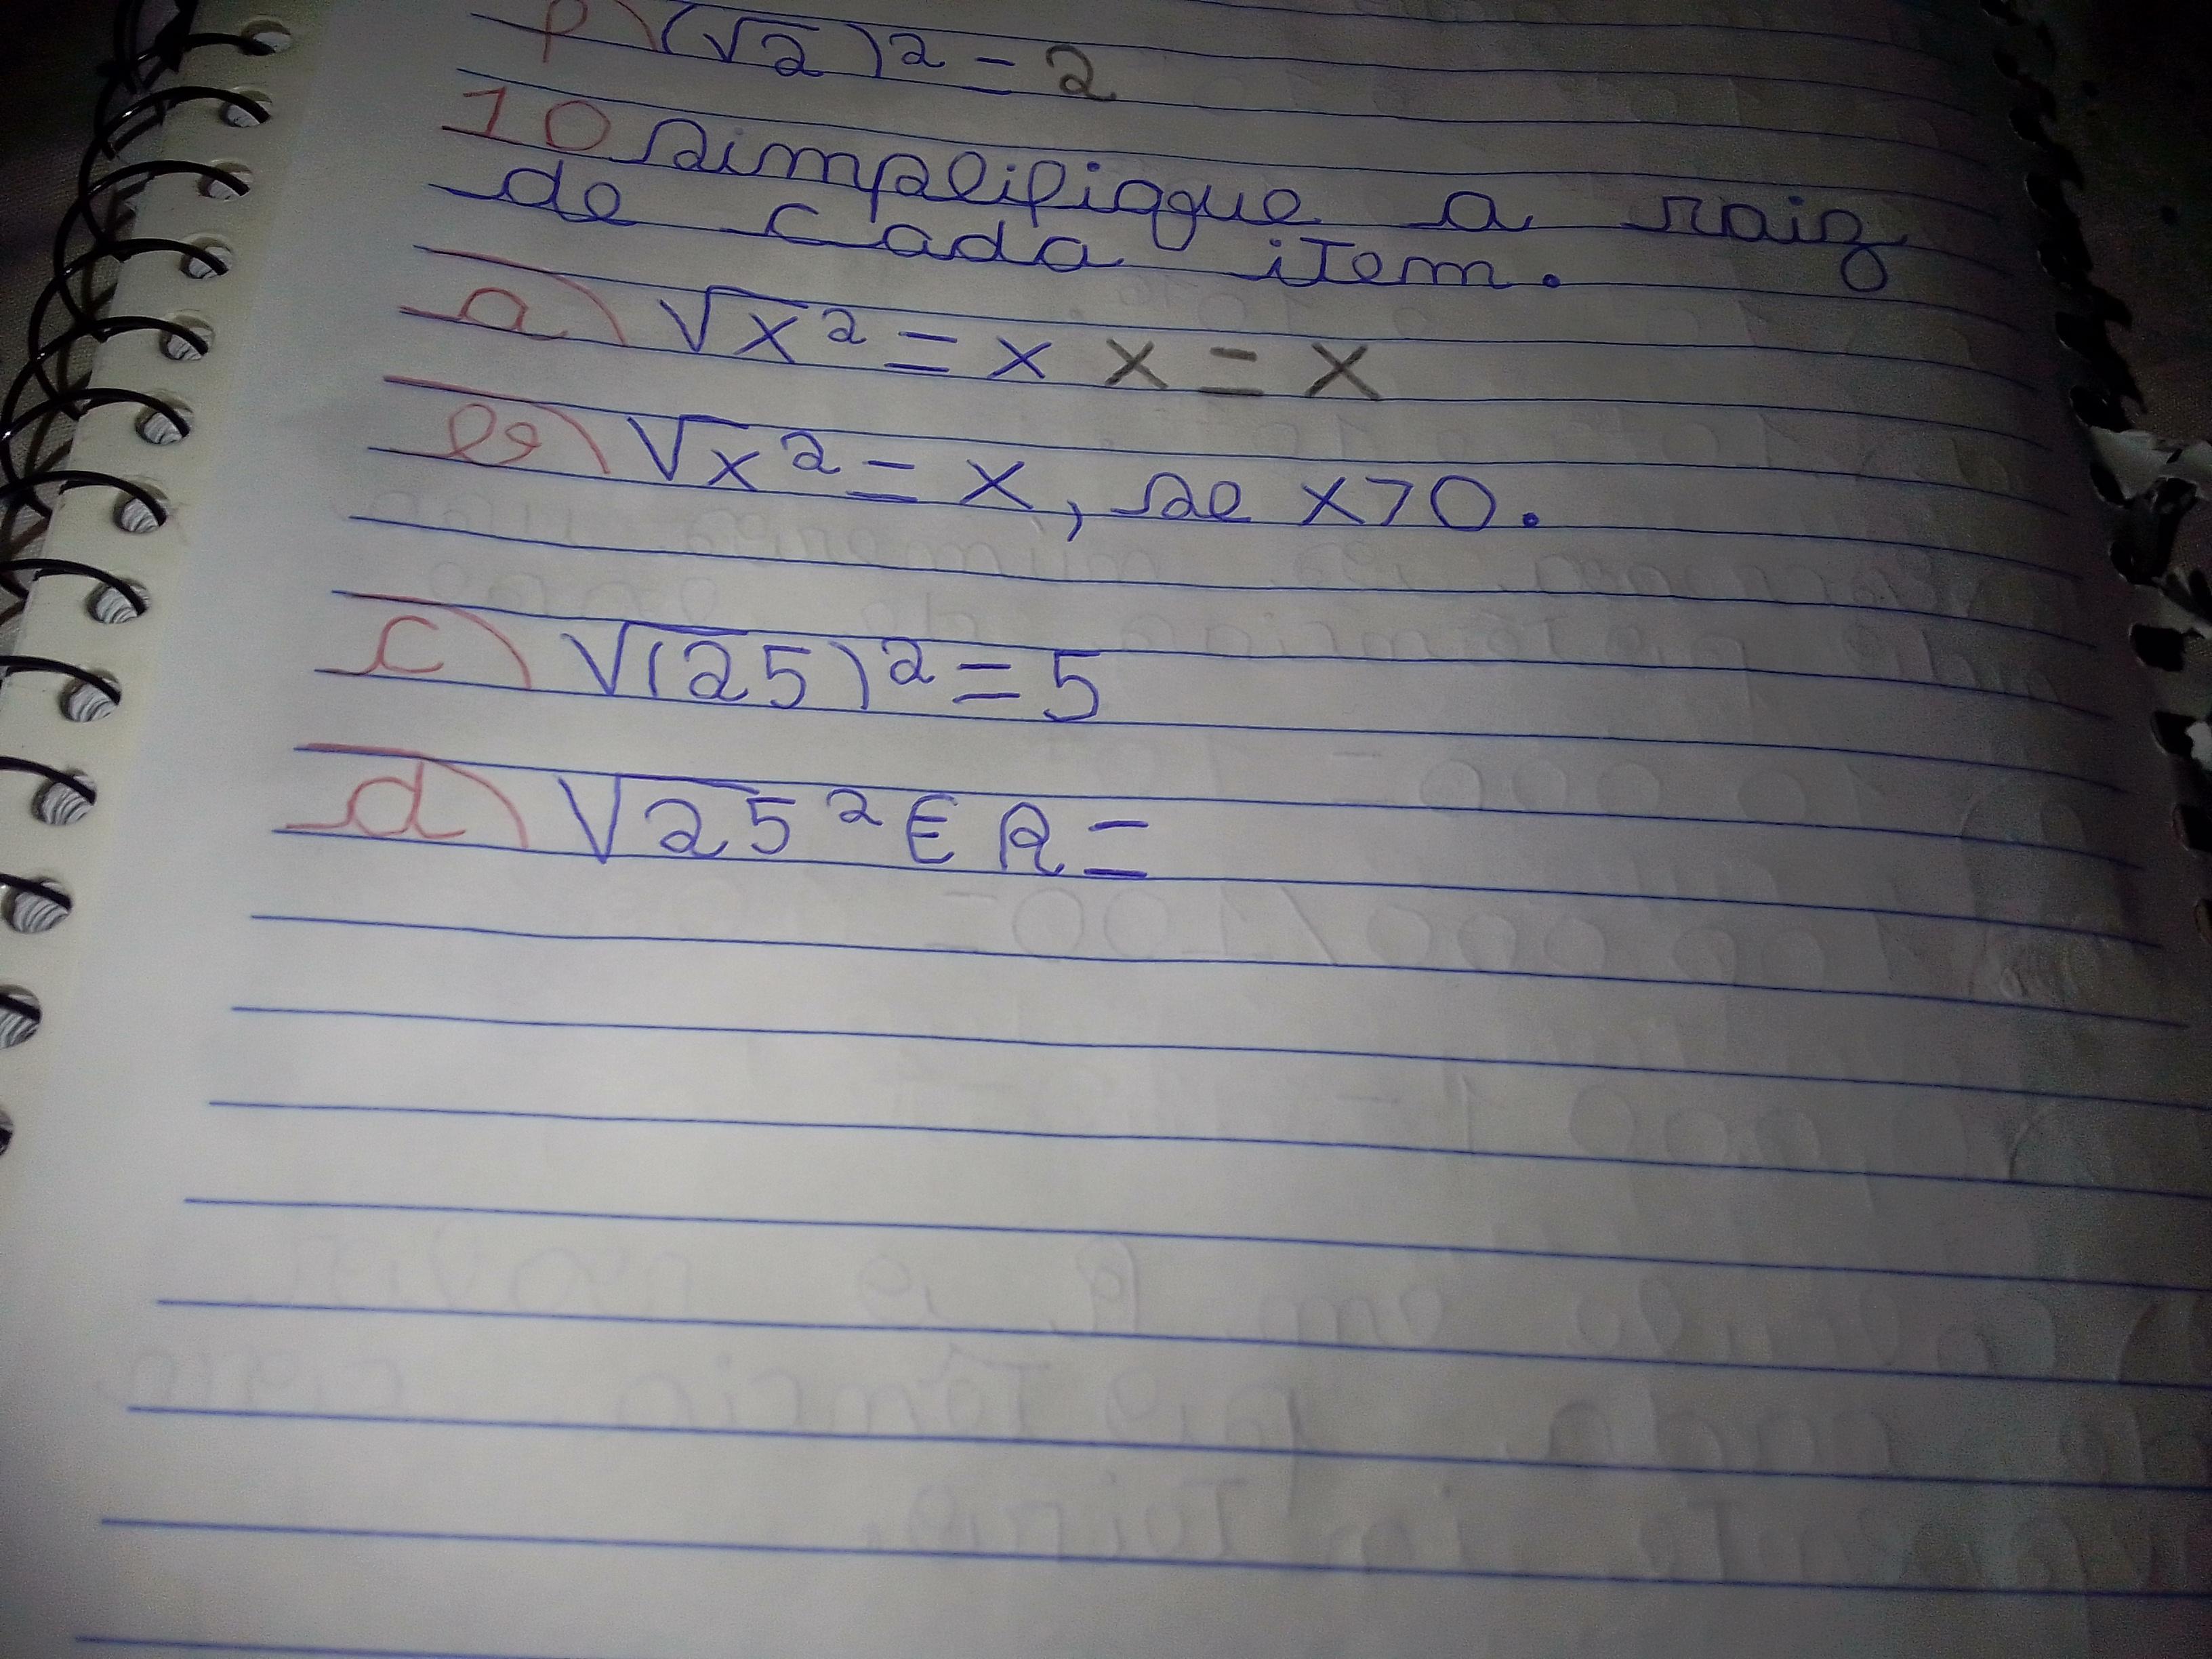 p) (√2)² = 2
10 simplifique a raiz
de cada item.
a) √x² = x x = x
b) √x² = x, se x>0.
c) √(25)² = 5
d) √25² ∈ R =